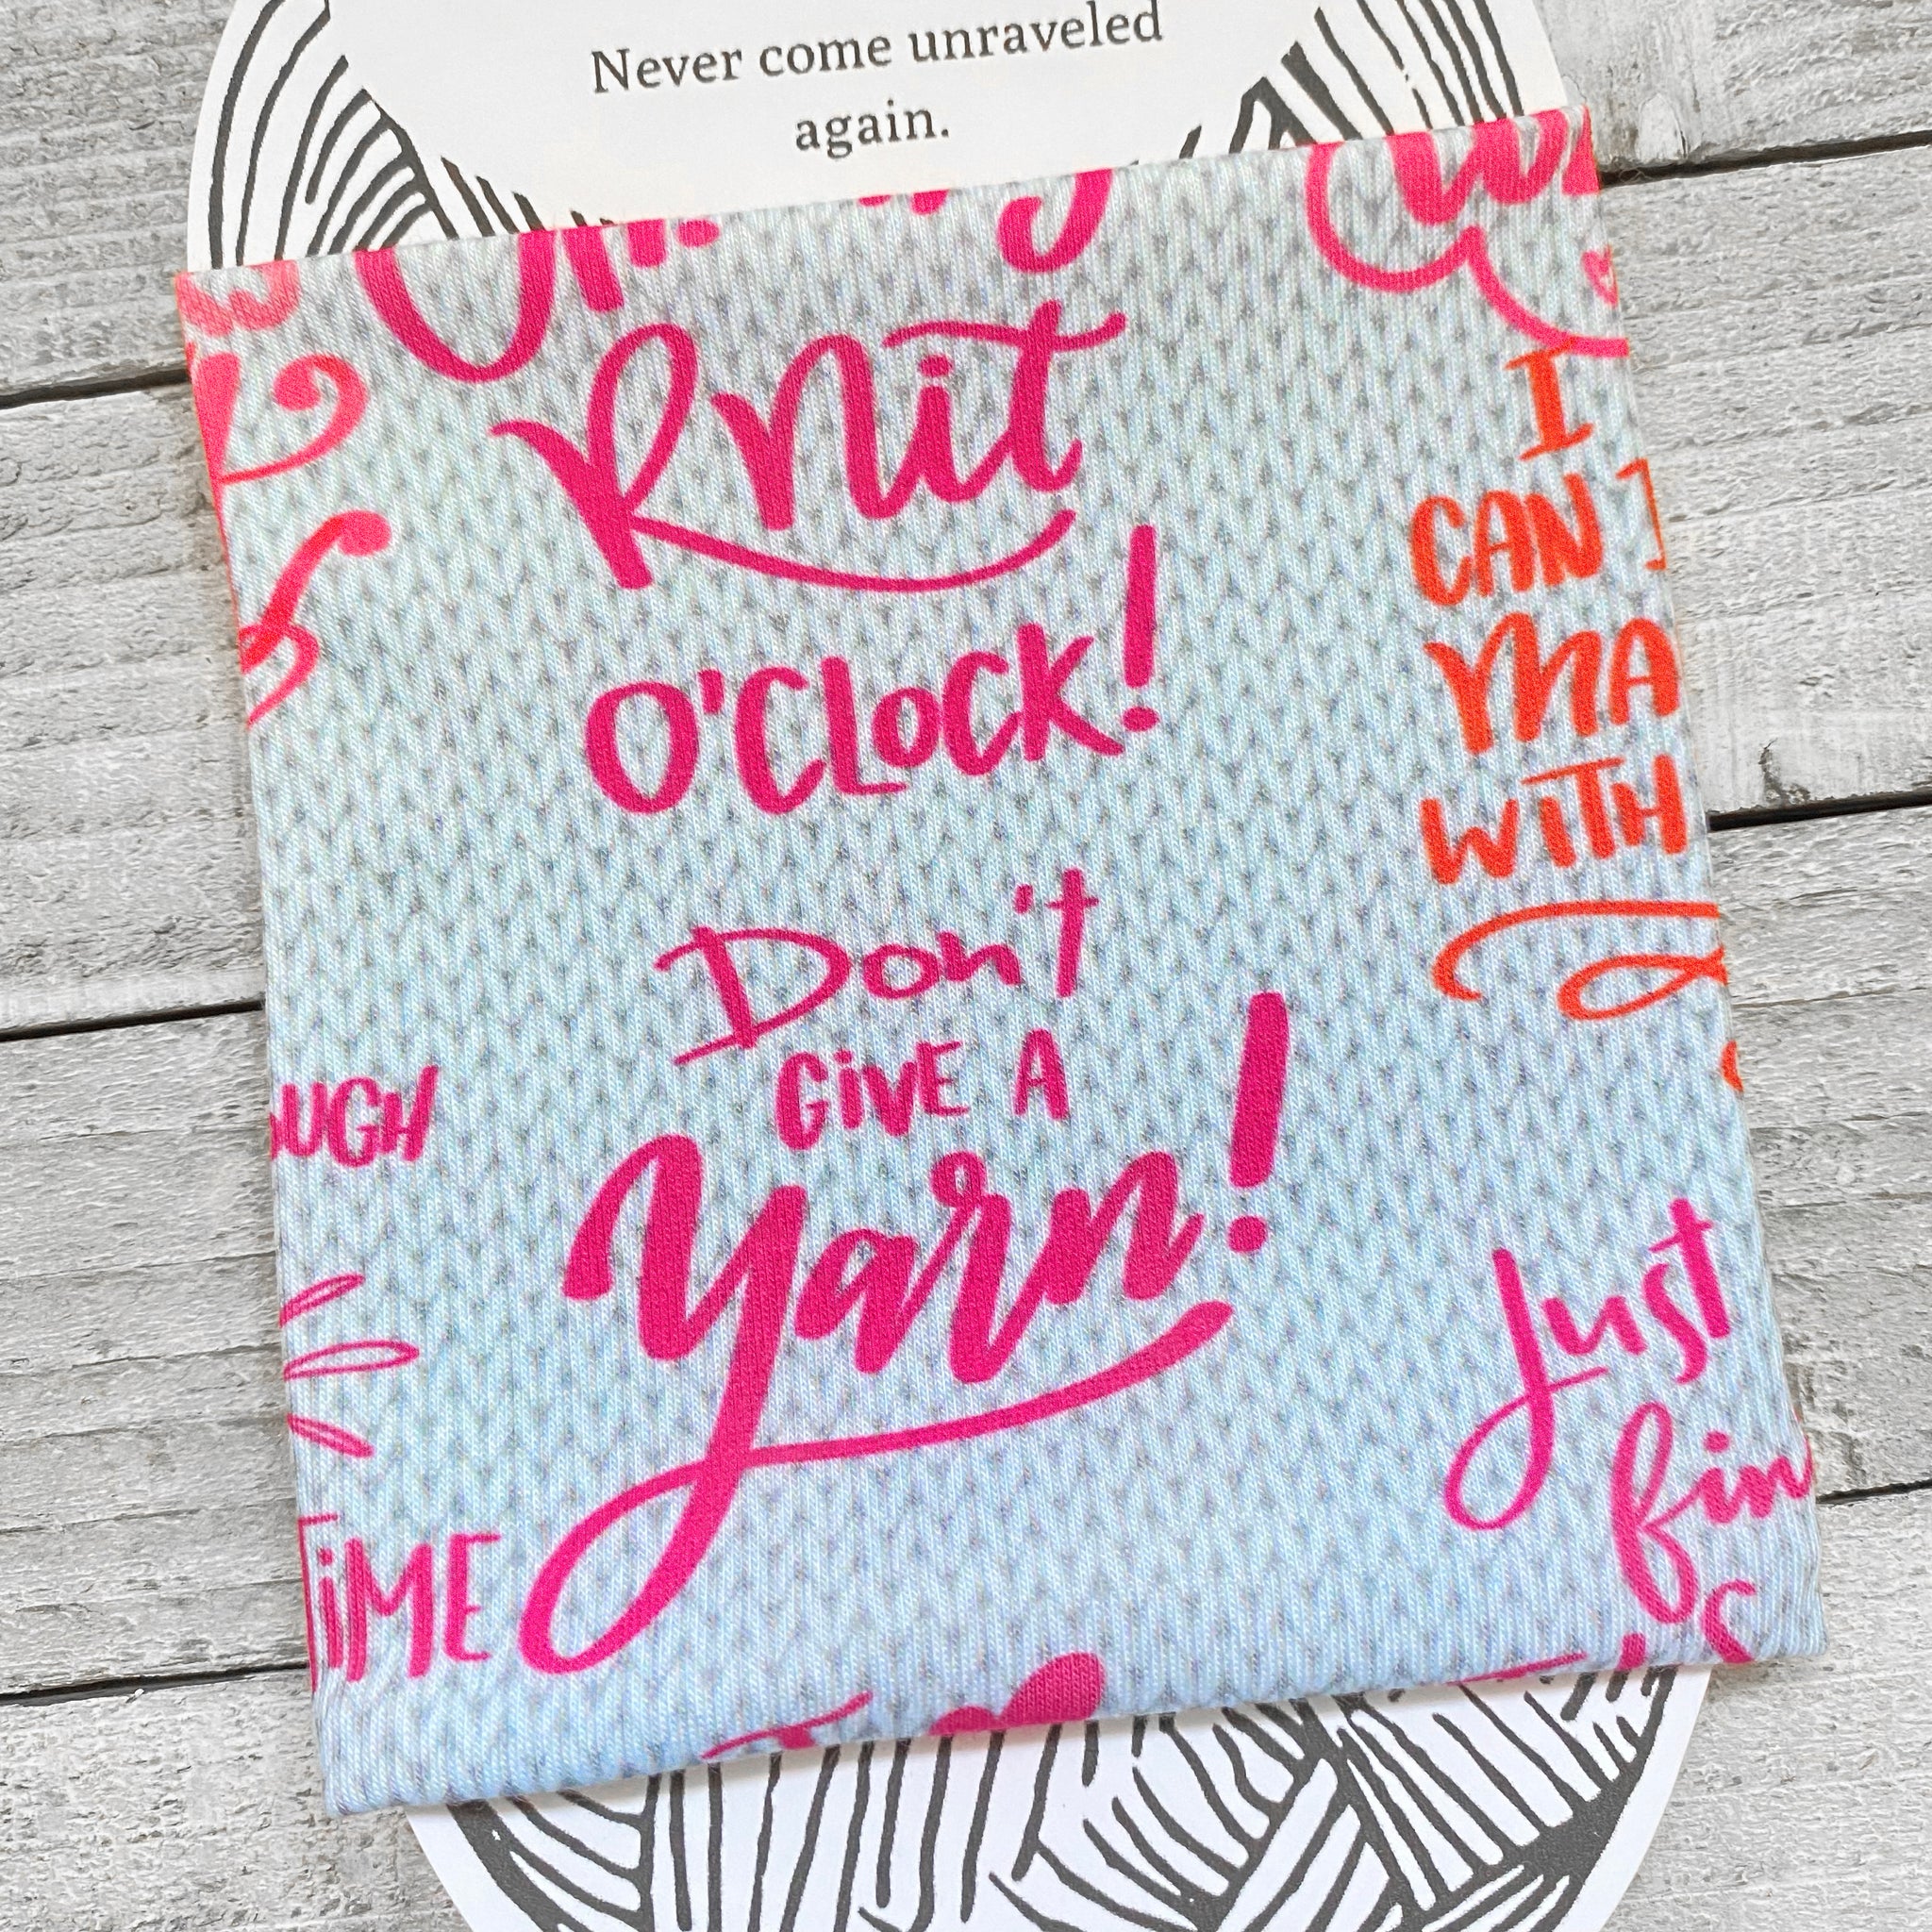 Never come unraveled
again.
Knit
O'CLOCK!
Don't
GIVE A
Yarn!
I
CAN
MA
WITH
OUGH
TIME
Just
fin
I